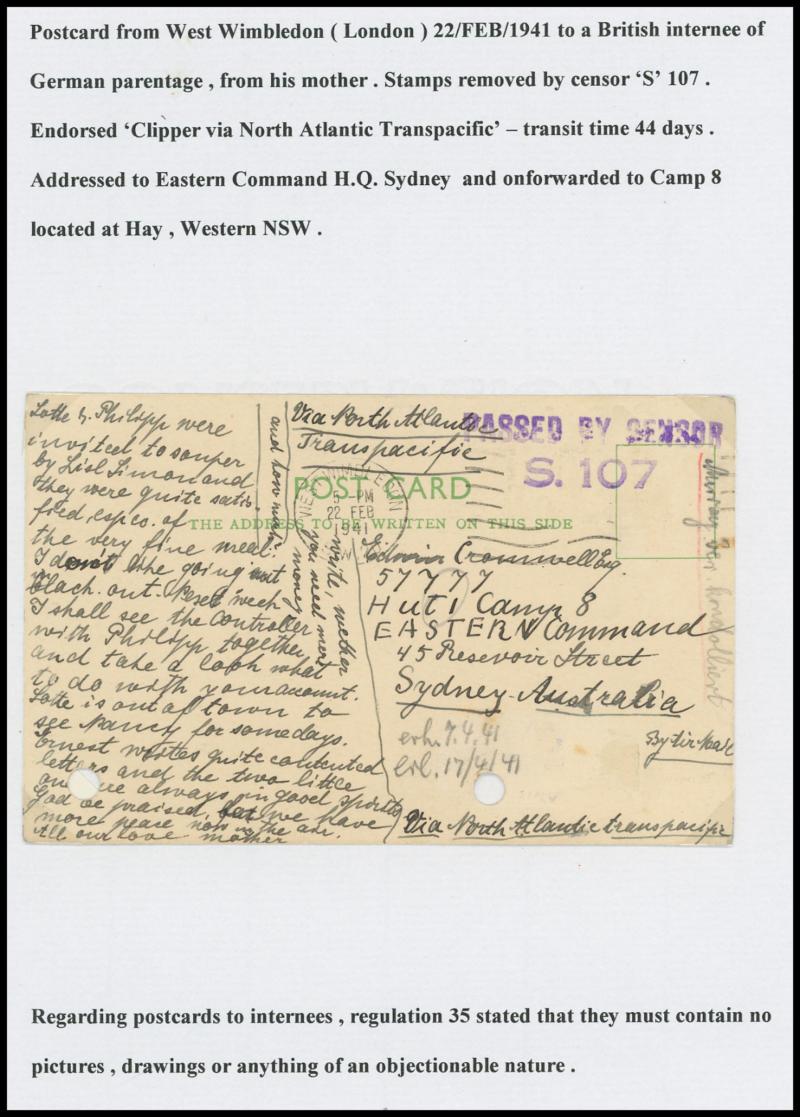 Postcard from West Wimbledon ( London ) 22/FEB/1941 to a British internee of
German parentage , from his mother . Stamps removed by censor ‘S’ 107 .
Endorsed ‘Clipper via North Atlantic Transpacific’ – transit time 44 days .
Addressed to Eastern Command H.Q. Sydney and onforwarded to Camp 8
located at Hay , Western NSW .
Lotte & Philipp were
invited to souper
by Lisl Simon and
they were quite satis-
fied, espec. of
the very fine meal.
I don't like going out
black-out. Next week
I shall see the Controller
with Philipp together
and take a look what
to do with your account.
Lotte is out of town to
see Nancy for somedays.
Ernest writes quite contented
letters and the two little
one are always in good spirits
God be praised, but we have
more peace now in the air.
All our love mother
and how much
money
you need more
write, wether
Via North Atlantic
Transpacific
PASSED BY CENSOR
S. 107
POST CARD
THE ADDRESS TO BE WRITTEN ON THIS SIDE
WEST WIMBLEDON
5-PM
22 FEB
1941
S.W.
Edwin Cromwell Esq.
57777
HUT 1 Camp 8
EASTERN Command
45 Resevoir Street
Sydney-Australia
By Air Mail
erh. 7.4.41
erl. 17/4/41
Via North Atlantic transpacific
Regarding postcards to internees , regulation 35 stated that they must contain no
pictures , drawings or anything of an objectionable nature .